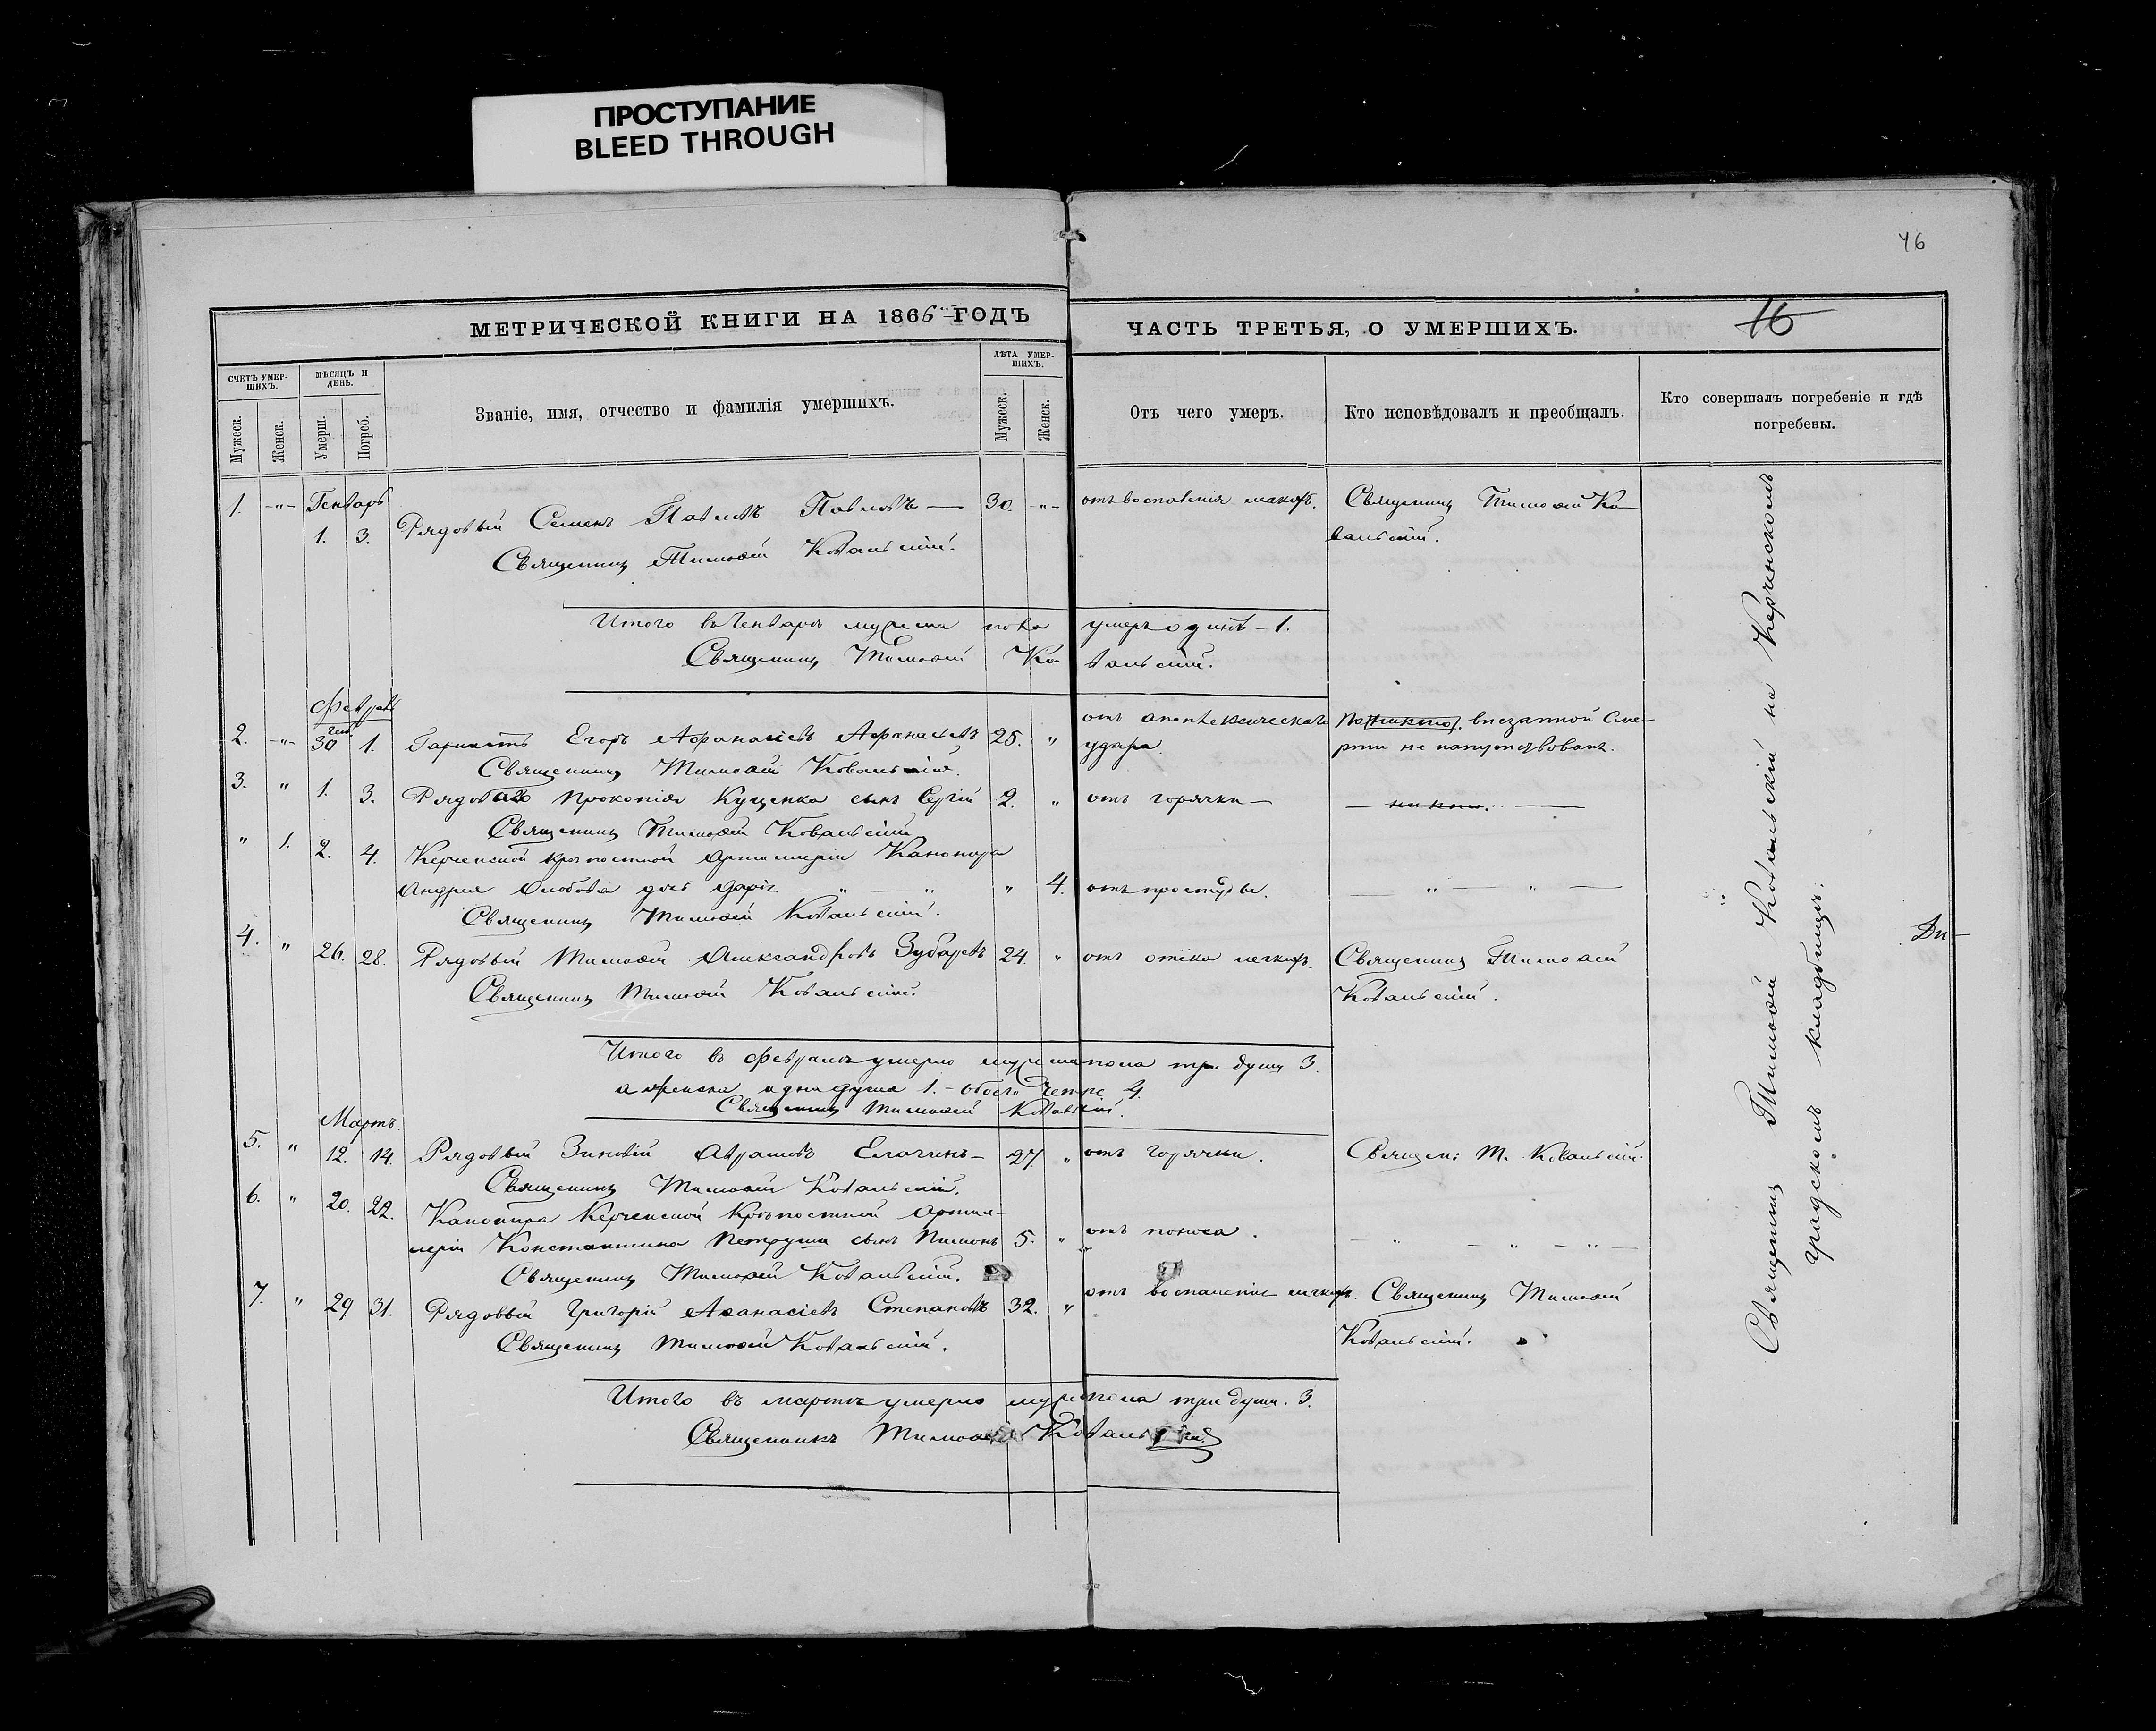 ПРОСТУПАНИЕ
BLEED THROUGH
46
МЕТРИЧЕСКОЙ КНИГИ НА 1866 ГОДЪ
ЧАСТЬ ТРЕТЬЯ, О УМЕРШИХЪ.
16
СЧЕТЪ УМЕР-
ШИХЪ.
МѢСЯЦЪ И
ДЕНЬ.
Званіе, имя, отчество и фамилія умершихъ.
ЛѢТА УМЕР-
ШИХЪ.
Мужеск.
Женск.
Умерш.
Погреб.
Мужеск.
Женск.
Отъ чего умеръ.
Кто исповѣдовалъ и преобщалъ.
Кто совершалъ погребеніе и гдѣ
погребены.
1. -"- Генварь
1. 3. Рядовый Семенъ Павловъ Павловъ — 30. -"- отъ воспаленія легкихъ. Священникъ Тимофей Ко-
вальскій.
Священникъ Тимофей Ковальскій.
Итого въ Генварѣ мужеска пола умеръ одинъ - 1.
Священникъ Тимофей Ковальскій.
Февраль
2. -"- Ген. 30 1. Егоръ Афанасьевъ Афанасьевъ 25. " отъ апоплексическаго По внезапной сме-
удара. рти не напутствованъ.
Священникъ Тимофей Ковальскій.
3. " 1. 3. Рядоваго Прокопія Куценка сынъ Сергій 2. " отъ горячки —
Священникъ Тимофей Ковальскій
" 1. 2. 4. Керченской крѣпостной Артиллеріи Канонира
Андрея дочь Дарія — " — " " 4. отъ простуды. — " — " —
Священникъ Тимофей Ковальскій.
4. " 26. 28. Рядовый Тимофей Александровъ Зубаревъ 24. " отъ отека легкихъ. Священникъ Тимофей
Священникъ Тимофей Ковальскій. Ковальскій.
Итого въ Февралѣ умерло мужеска пола три души 3.
а женска одна душа 1. - обоего четыре 4.
Священникъ Тимофей Ковальскій.
Мартъ.
5. " 12. 14. Рядовый Зиновій Авраамовъ Елагинъ - 27. " отъ горячки. Священ: Т. Ковальскій.
Священникъ Тимофей Ковальскій.
6. " 20. 22. Канонира Керченской Крѣпостной Артил-
леріи Константина Петруша сынъ 5. " отъ поноса. — " — " — " —
Священникъ Тимофей Ковальскій.
7. " 29 31. Рядовый Григорій Афанасіевъ Степановъ 32. " отъ воспаленіе легкихъ. Священникъ Тимофей
Священникъ Тимофей Ковальскій. Ковальскій.
Итого въ мартѣ умерло муж. пола три души. 3.
Священникъ Тимофей Ковальскій
Священникъ Тимофей Ковальскій на Керченскомъ
градскомъ кладбищѣ.